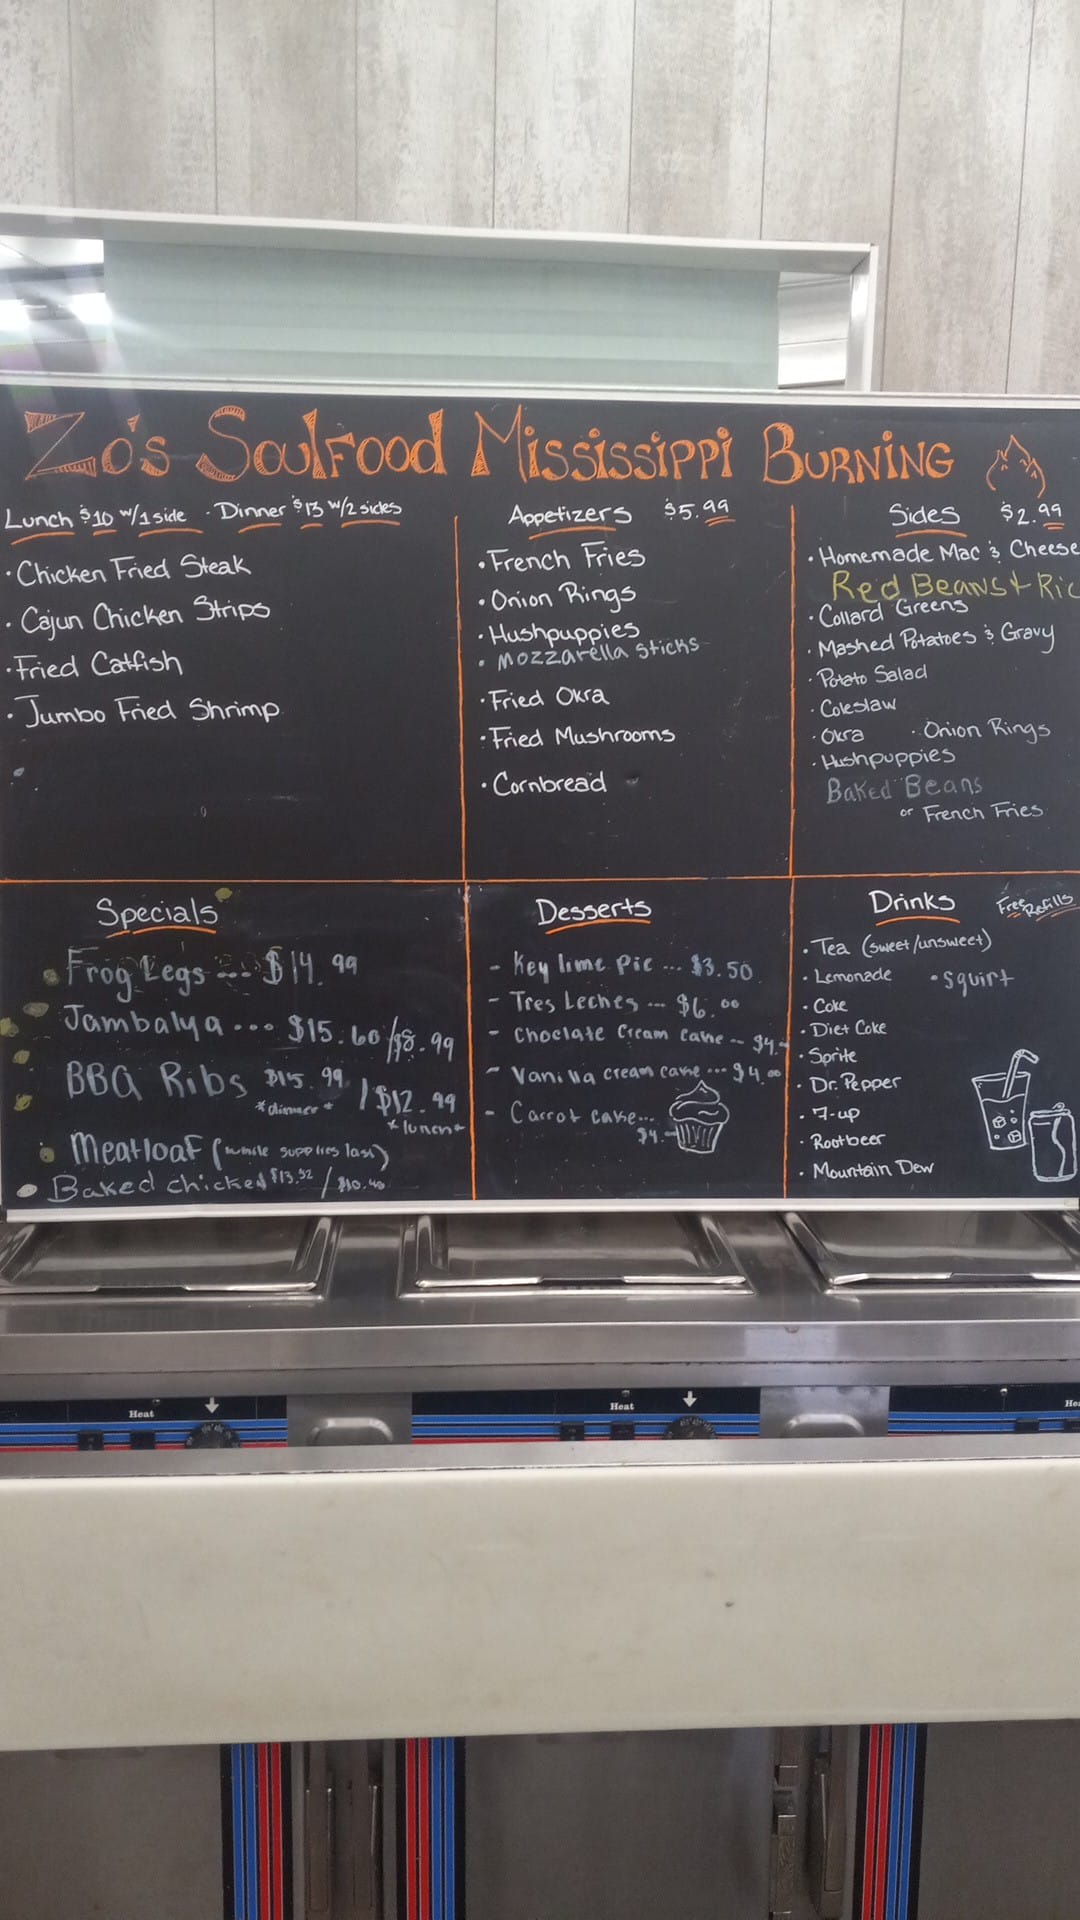 Zo's Soulfood Mississippi Burning
Lunch $10 w/1 side · Dinner $13 w/2 sides
· Chicken Fried Steak
· Cajun Chicken Strips
· Fried Catfish
· Jumbo Fried Shrimp
Appetizers $5.99
· French Fries
· Onion Rings
· Hushpuppies
· Mozzarella Sticks
· Fried Okra
· Fried Mushrooms
· Cornbread
Sides $2.99
· Homemade Mac & Cheese
Red Beans + Ric
· Collard Greens
· Mashed Potatoes & Gravy
· Potato Salad
· Coleslaw
· Okra · Onion Rings
· Hushpuppies
Baked Beans
or French Fries
Specials
Frog Legs --- $14.99
Jambalya ... $15.60/$8.99
BBQ Ribs $15.99 / $12.99
*dinner* *lunch*
Meatloaf (while supplies last)
Baked chicken $13.52 / $10.40
Desserts
- Key lime Pie ... $3.50
- Tres Leches --- $6.00
- Choclate Cream cake -- $4.-
- Vanilla cream cake --- $4.00
- Carrot cake...
$4.-
Drinks Free Refills
· Tea (sweet/unsweet)
· Lemonade · Squirt
· Coke
· Diet Coke
· Sprite
· Dr. Pepper
· 7-up
· Rootbeer
· Mountain Dew
Heat
Heat
Hea